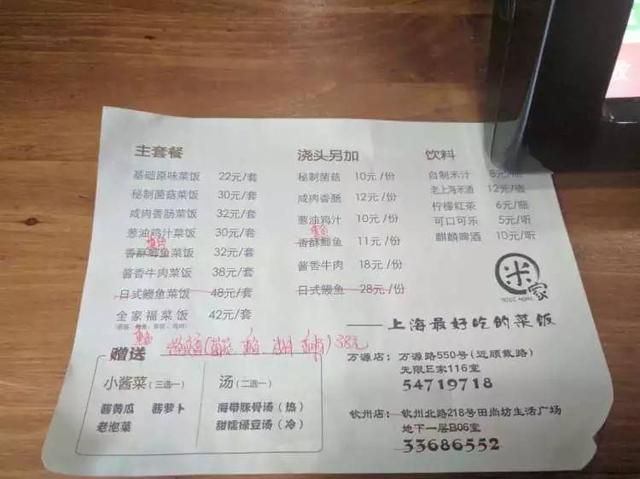 主套餐
基础原味菜饭 22元/套
秘制菌菇菜饭 30元/套
咸肉香肠菜饭 32元/套
葱油鸡汁菜饭 30元/套
香酥鲫鱼菜饭 32元/套
酱香牛肉菜饭 38元/套
日式鳗鱼菜饭 48元/套
全家福菜饭 42元/套
浇头另加
秘制菌菇 10元/份
咸肉香肠 12元/份
葱油鸡汁 10元/份
香酥鲫鱼 11元/份
酱香牛肉 18元/份
日式鳗鱼 28元/份
饮料
自制米汁 元/
老上海米酒 12元/
柠檬红茶 6元/瓶
可口可乐 5元/听
麒麟啤酒 10元/听
米家
——上海最好吃的菜饭
38元
赠送
小酱菜（三选一）
酱黄瓜 酱萝卜
老泡菜
汤（二选一）
海带豚骨汤（热）
甜糯绿豆汤（冷）
万源店：万源路550号（近顾戴路）
无限E家116室
54719718
钦州店：钦州北路218号田尚坊生活广场
地下一层B06室
33686552